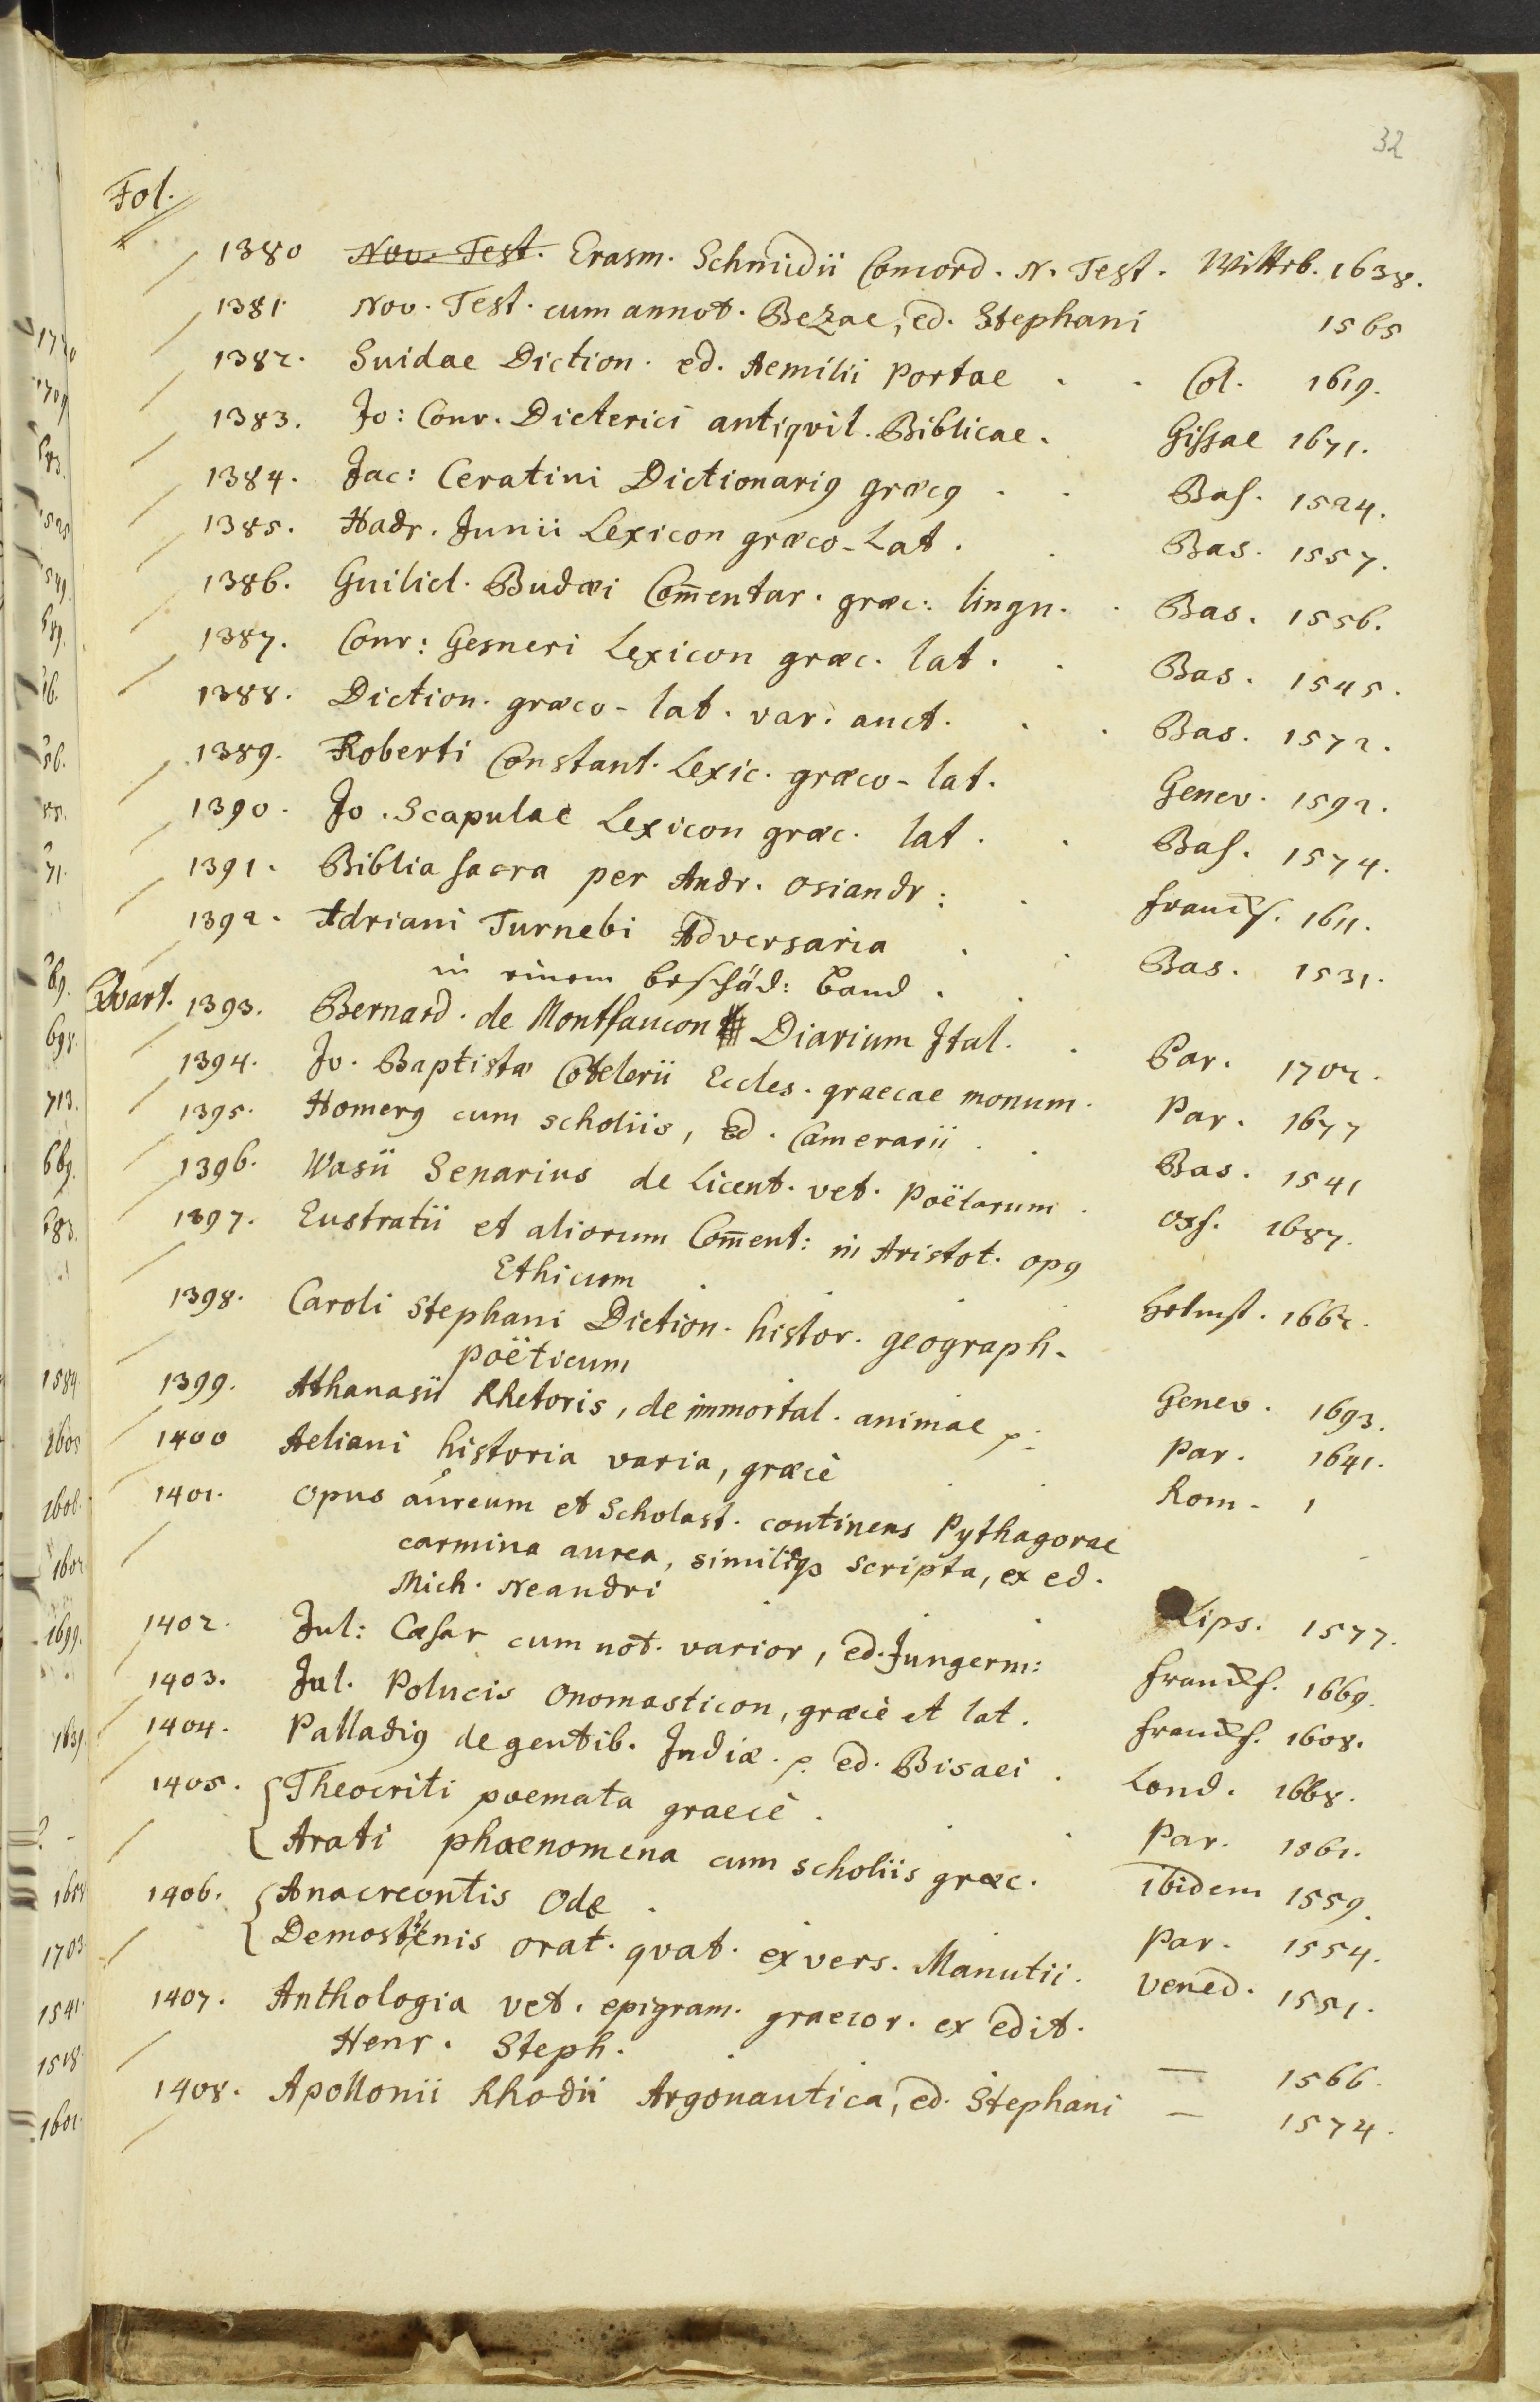 32
Fol.
1380 Nov. Test. Erasm. Schmidii Concord. N. Test. Wittb. 1638.
1381 Nov. Test. cum annot. Bezae, ed. Stephani 1565
1382. Suidae Diction. ed. Aemilii Portae . . Col. 1619.
1383. Jo: Conr. Dieterici antiqvit. Biblicae. Gissae 1671.
1384. Jac: Ceratini Dictionariꝰ græcꝰ . . Bas. 1524.
1385. Hadr. Junii Lexicon græco-Lat. . Bas. 1557.
1386. Guiliel. Budæi Com̄entar. græc: lingu. . Bas. 1556.
1387. Conr: Gesneri Lexicon græc. lat. . Bas. 1545.
1388. Diction. græco-lat. var. auct. . . Bas. 1572.
1389. Roberti Constant. Lexic. græco-lat. Genev. 1592.
1390. Jo. Scapulae Lexicon græc. lat. . Bas. 1574.
1391. Biblia sacra per Andr. Osiandr: . Francf. 1611.
1392. Adriani Turnebi Adversaria . . Bas. 1531.
in einem beschäd: Band . .
Qvart. 1393. Bernard. de Montfaucon Diarium Ital. . Par. 1702.
1394. Jo. Baptistæ Cotelerii Eccles. graecae monum. Par. 1677
1395. Homerꝰ cum scholiis, ed. Camerarii . . Bas. 1541
1396. Wasii Senarius de Licent. vet. Poëtarum . Oxf. 1687.
1397. Eustratii et aliorum Com̄ent: in Aristot. opꝰ
Ethicum . . . . Helmst. 1662.
1398. Caroli Stephani Diction. histor. geograph.
poëticum . . Genev. 1693.
1399. Athanasii Rhetoris, de immortal. animae p: Par. 1641.
1400 Aeliani historia varia, græcè . . Rom. 1
1401. Opus aureum et Scholast. continens Pythagorae
carmina aurea, similiaqꝫ scripta, ex ed.
Mich. Neandri . . . Lips. 1577.
1402. Jul: Cæsar cum not. varior, ed. Jungerm: Francf. 1669.
1403. Jul. Polucis Onomasticon, græcè et lat. Francf. 1608.
1404. Palladiꝰ de gentib. Indiæ. p. ed. Bisaei . Lond. 1668.
1405. { Theocriti poemata graecè . . . Par. 1561.
{ Arati phaenomena cum scholiis græc. ibidem 1559.
1406. { Anacreontis Ode . . Par. 1554.
{ Demosthenis orat. qvat. ex vers. Manutii. Vened. 1551.
1407. Anthologia vet. epigram. graecor. ex edit.
Henr. Steph. . . — 1566.
1408. Apollonii Rhodii Argonautica, ed. Stephani — 1574.